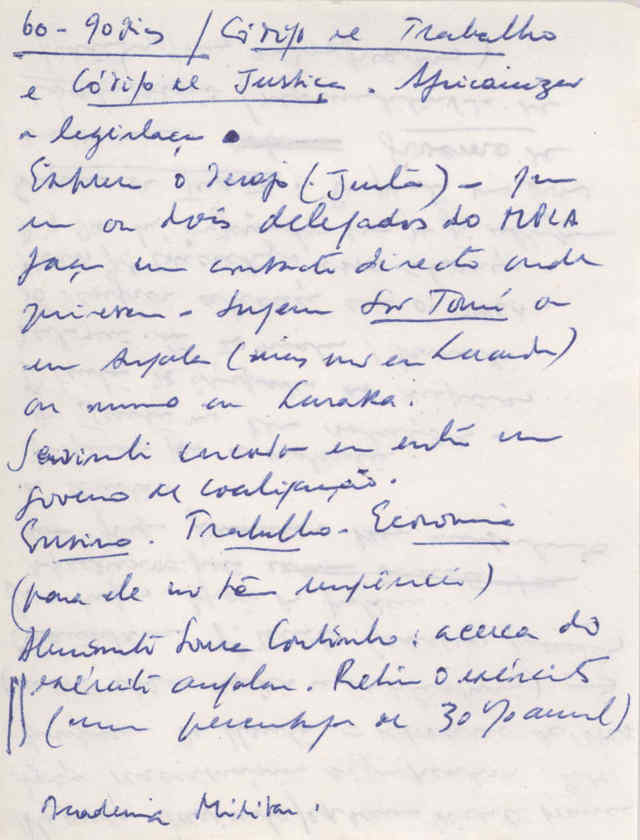 60-90 dias / Código de Trabalho
e Código de Justiça. Africanizar
a legislação.
Exprem o desejo (Junta) - que
um ou dois delegados do MPLA
faça um contacto directo onde
quiserem - Sugerem São Tomé ou
em Angola (mas não em Luanda)
ou mesmo em Lusaka.
Savimbi em um
governo de coaligação.
Ensino. Trabalho. Economia
(para ele não têm)
Almirante Sousa Coutinho: acerca do
exército angolano. Retira o exército
(numa percentagem de 30% anual)
Academia Militar.